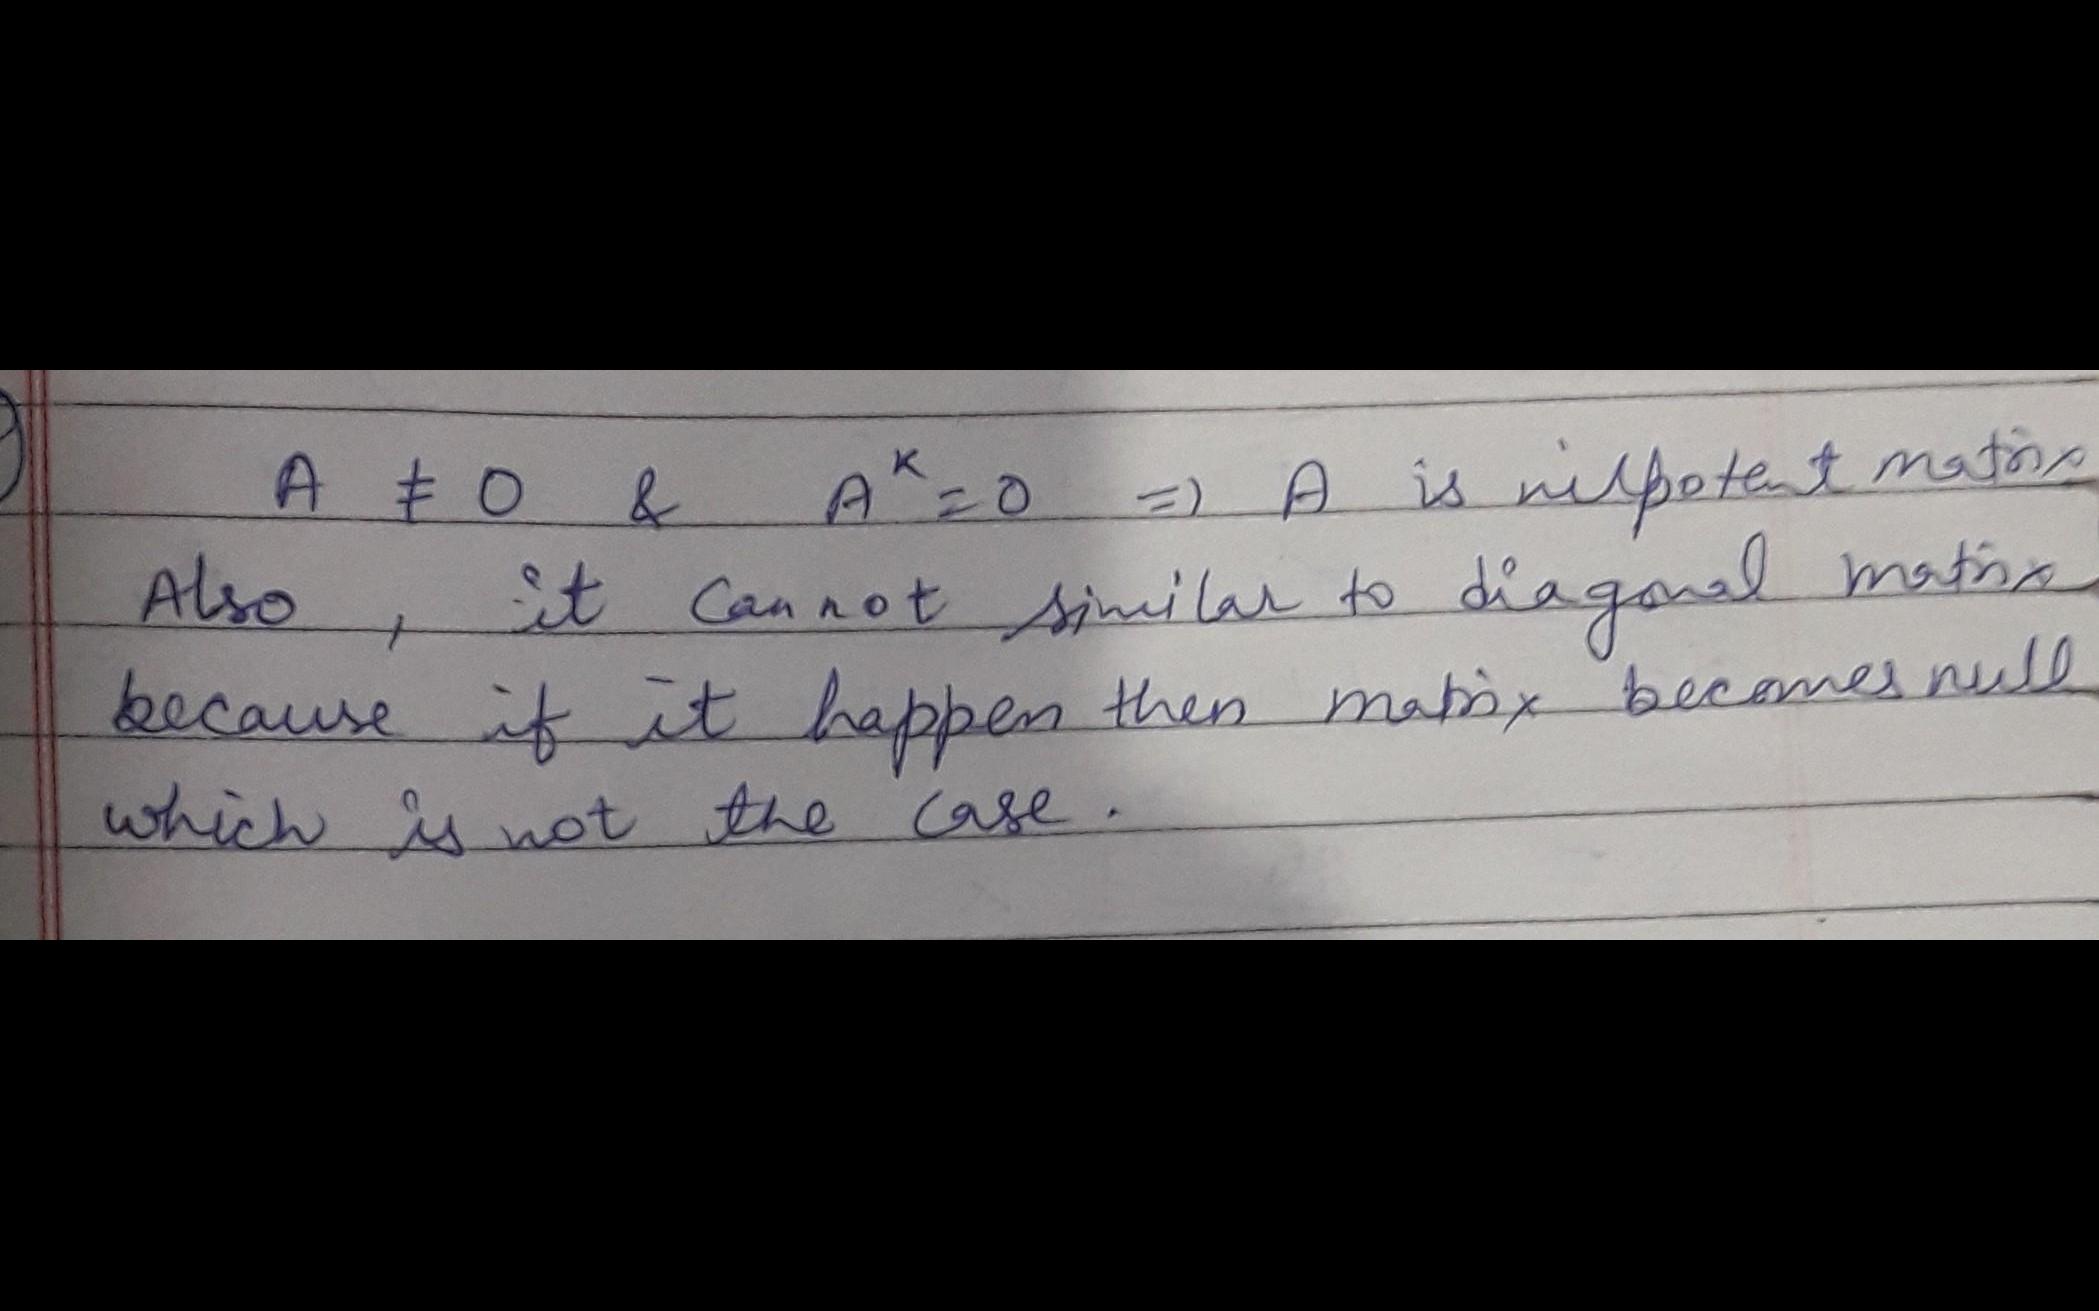 A ≠ 0 & A^K = 0 => A is nilpotent matrix
Also , it cannot similar to diagonal matrix
because if it happen then matrix becomes null
which is not the case .